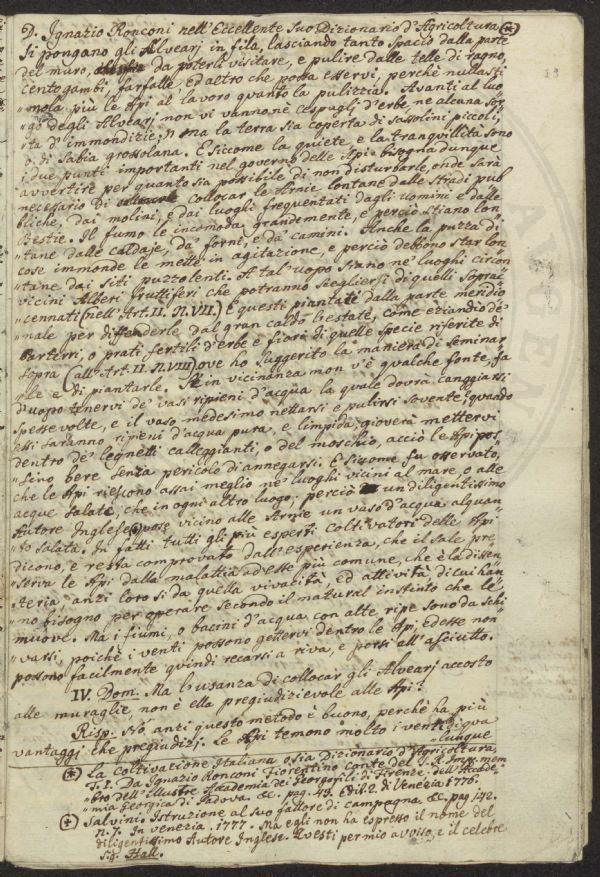 D. Ignazio Ronconi nell'Eccellente Suo Dizionario d'Agricoltura (*)
Si pongano gli Alvearj in fila, lasciando tanto Spacio dalla parte
del muro, da poterli visitare, e pulire dalle telle di ragno,
centogambi, farfalle, ed altro che possa esservi, perchè nulla sti=
"mola più le Api al lavoro quanto la pulizzia. Avanti al luo=
"go degli Alvearj non vi vanno nè cespugli d'erbe ne alcuna sor=
"ta d'immondizie; ma la terra sia coperta di sassolini piccoli,
o di Sabia grossolana. E siccome la quiete, e la tranquillità sono
i due punti importanti nel governo delle Api bisogna dunque
avvertire per quanto sia possibile di non disturbarle, onde sarà
necesario di collocar le Arnie lontane dalle Stradi pub=
bliche, dai molini, e dai luoghi frequentati dagli uomini e dalle
Bestie. Il fumo le incomoda grandemente, e perciò stiano lon=
"tane dalle caldaje, da' forni, e da' camini. Anche la puzza di
cose immonde le mette in agitazione, e perciò debbono star lon=
"tane dai siti puzzolenti. A tal'uopo stano ne' luoghi circon=
vicini Alberi fruttiferi che potranno scegliersi di quelli sopra=
"cennati (nell'Art. II. N. VII.) E questi piantati dalla parte meridio=
"nale per diffenderle dal gran caldo l'estate, come eziandio de'
Parterri, o prati fertili d'erbe e fiori di quelle specie riferite di
sopra (all'Art. II. N. VIII) ove ho suggerito la maniera di seminar=
"le e di piantarle. Se in vicinanza non v'è qualche fonte, fa
d'uopo tenervi de' vasi ripieni d'acqua la quale dovrà canggiarsi
spesse volte, e il vaso medesimo nettarsi e pulirsi sovente; quando
essi saranno ripieni d'acqua pura, e limpida, gioverà mettervi
dentro de' legnetti galleggianti, o del moschio, acciò le Api pos=
"sino bere senza pericolo di annegarsi. E siccome fu osservato,
che le Api riescono assai meglio ne' luoghi vicini al mare, o alle
acque salate, che in ogni altro luogo; perciò un diligentissimo
Autore Inglese (+) pose vicino alle Arnie un vaso d'acqua alquan=
"to salata. In fatti tutti gli più esperti coltivatori delle Api
dicono, e resta comprovato dall'esperienza, che il sale pre=
"serva le Api dalla malattia ad esse più comune, che è la dissen=
"teria, anzi loro si da quella vivacità, ed attività di cui han=
"no bisogno per operare secondo il natural instinto che le
muove. Ma i fiumi, o bacini d'acqua con alte ripe sono da schi=
"varsi, poichè i venti possono gettervi dentro le Api, ed esse non
possono facilmente quindi recarsi a riva, e porsi all'asciutto.
IV. Dom. Ma l'usanza di collocar gli Alvearj accosto
alle muraglie, non è ella pregiudizievole alle Api?
Risp. Nò, anzi questo metodo è buono, perchè ha più
vantaggj che pregiudizj. Le Api temono molto i venti; qua=
"lunque
(*) La Coltivazione Italiana o sia Dizionario d'Agricoltura,
T. I. Da Ignazio Ronconi Fiorentino Conte del S. R. Imp. mem
"bro dell'illustre Accademia dei Georgofili di Firenze, dell'Accade=
"mia Georgica di Padova &c. pag. 43. Ediz. 2. di Venezia 1776;
(+) Salvini. Istruzione al suo fattore di campagna &c. pag. 142.
n. 7. In venezia. 1777. Ma egli non ha espresso il nome del
diligentissimo Autore Inglese. Questi per mio avviso, e il celebre
Sig. Hall.